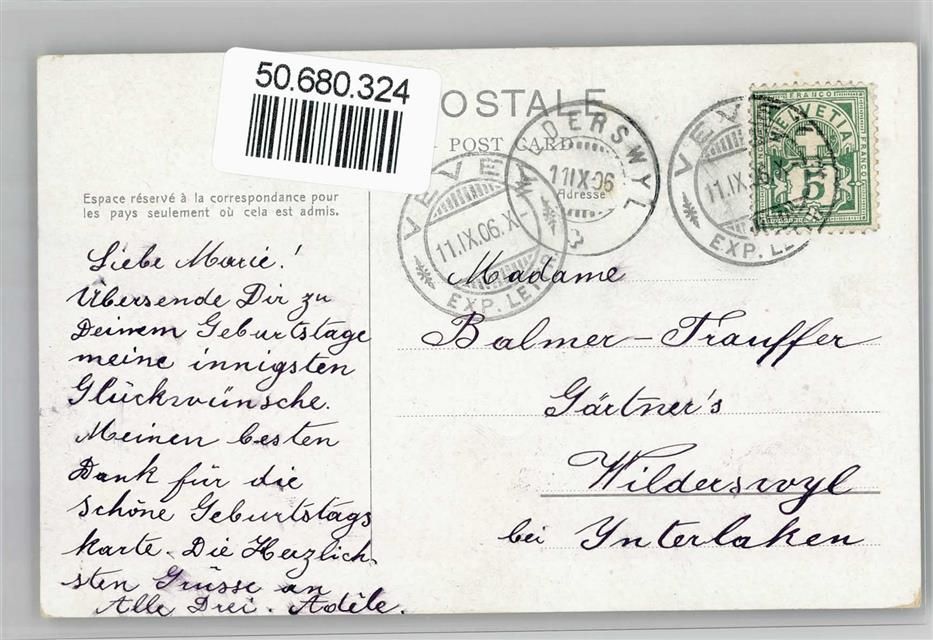 50.680.324
OSTALE
POST CARD
Espace réservé à la correspondance pour
les pays seulement où cela est admis.
VEVEY
11.IX.06.X
EXP. LETT
WILDERSWYL
11 IX 06
Adresse
VEVEY
11.IX.06.X
EXP. LE
FRANCO
HELVETIA
FRANCO
5
Liebe Marie!
Übersende Dir zu
Deinem Geburtstage
meine innigsten
Glückwünsche.
Meinen besten
Dank für die
schöne Geburtstags
karte. Die Herzlich-
sten Grüsse an
Alle Drei. Adèle.
Madame
Balmer-Trauffer
Gärtner's
Wilderswyl
bei Ynterlaken